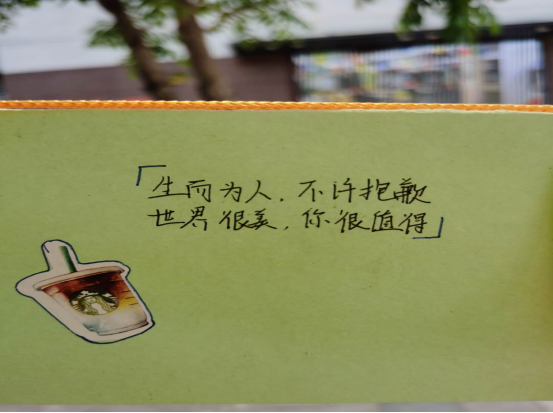 「生而为人，不许抱歉
世界很美，你很值得」